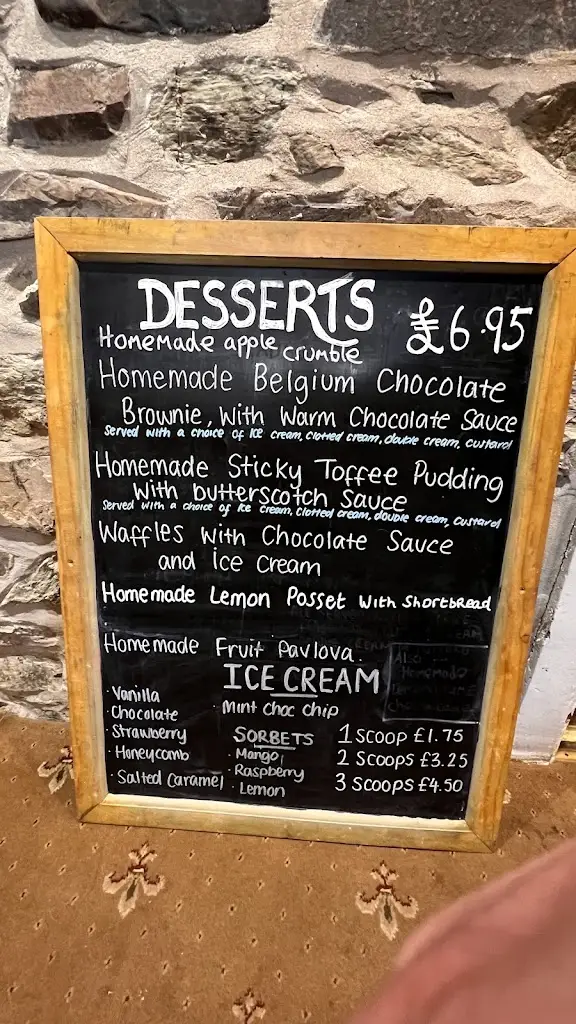 DESSERTS £6.95
Homemade apple crumble
Homemade Belgium Chocolate
Brownie, with Warm Chocolate Sauce
Served with a choice of ice cream, clotted cream, double cream, custard
Homemade Sticky Toffee Pudding
with butterscotch Sauce
Served with a choice of ice cream, clotted cream, double cream, custard
Waffles with Chocolate Sauce
and Ice Cream
Homemade Lemon Posset with Shortbread
Homemade Fruit Pavlova
ALSO
Homemade
ICE CREAM
· Vanilla
· Chocolate
· Strawberry
· Honeycomb
· Salted Caramel
· Mint choc chip
SORBETS
· Mango
· Raspberry
· Lemon
1 SCOOP £1.75
2 SCOOPS £3.25
3 SCOOPS £4.50